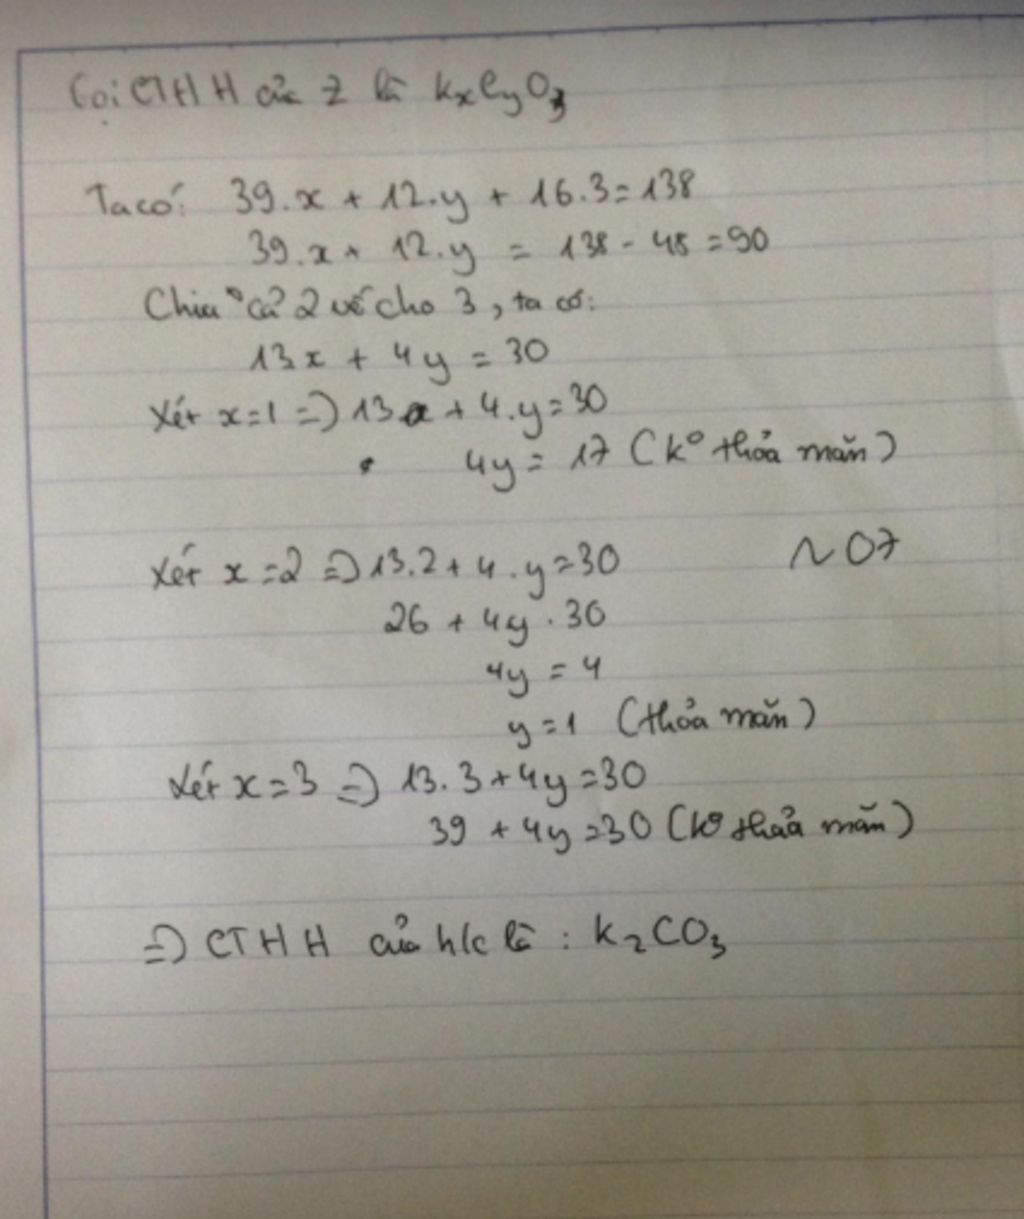 Gọi CTHH của Z là KxCyO3
Ta có: 39.x + 12.y + 16.3 = 138
39.x + 12.y = 138 - 48 = 90
Chia cả 2 vế cho 3, ta có:
13x + 4y = 30
Xét x=1 => 13 + 4.y = 30
4y = 17 (ko thỏa mãn)
Xét x=2 => 13.2 + 4.y = 30
~07
26 + 4y . 30
4y = 4
y = 1 (thỏa mãn)
Xét x=3 => 13.3 + 4y = 30
39 + 4y = 30 (ko thỏa mãn)
=> CTHH của h/c là : K2CO3